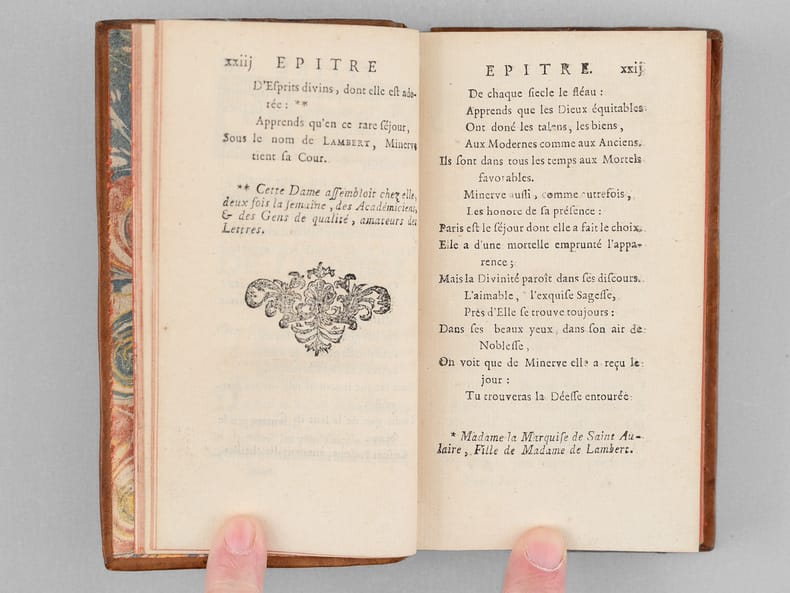 xxiij EPITRE
D'Eſprits divins, dont elle eſt ado-
rée : **
Apprends qu'en ce rare ſéjour,
Sous le nom de LAMBERT, Minerve
tient ſa Cour.
** Cette Dame aſſembloit chez elle,
deux fois la ſemaine, des Académiciens,
& des Gens de qualité, amateurs des
Lettres.
EPITRE. xxij
De chaque ſiecle le fléau :
Apprends que les Dieux équitables
Ont doné les talens, les biens,
Aux Modernes comme aux Anciens.
Ils ſont dans tous les temps aux Mortels
favorables.
Minerve auſſi, comme autrefois,
Les honore de ſa préſence :
Paris eſt le ſéjour dont elle a fait le choix.
Elle a d'une mortelle emprunté l'appa-
rence ;
Mais la Divinité paroît dans ſes diſcours.
L'aimable, * l'exquiſe Sageſſe,
Près d'Elle ſe trouve toujours :
Dans ſes beaux yeux, dans ſon air de
Nobleſſe,
On voit que de Minerve elle a reçu le
jour :
Tu trouveras la Déeſſe entourée
* Madame la Marquiſe de Saint Au-
laire, Fille de Madame de Lambert.